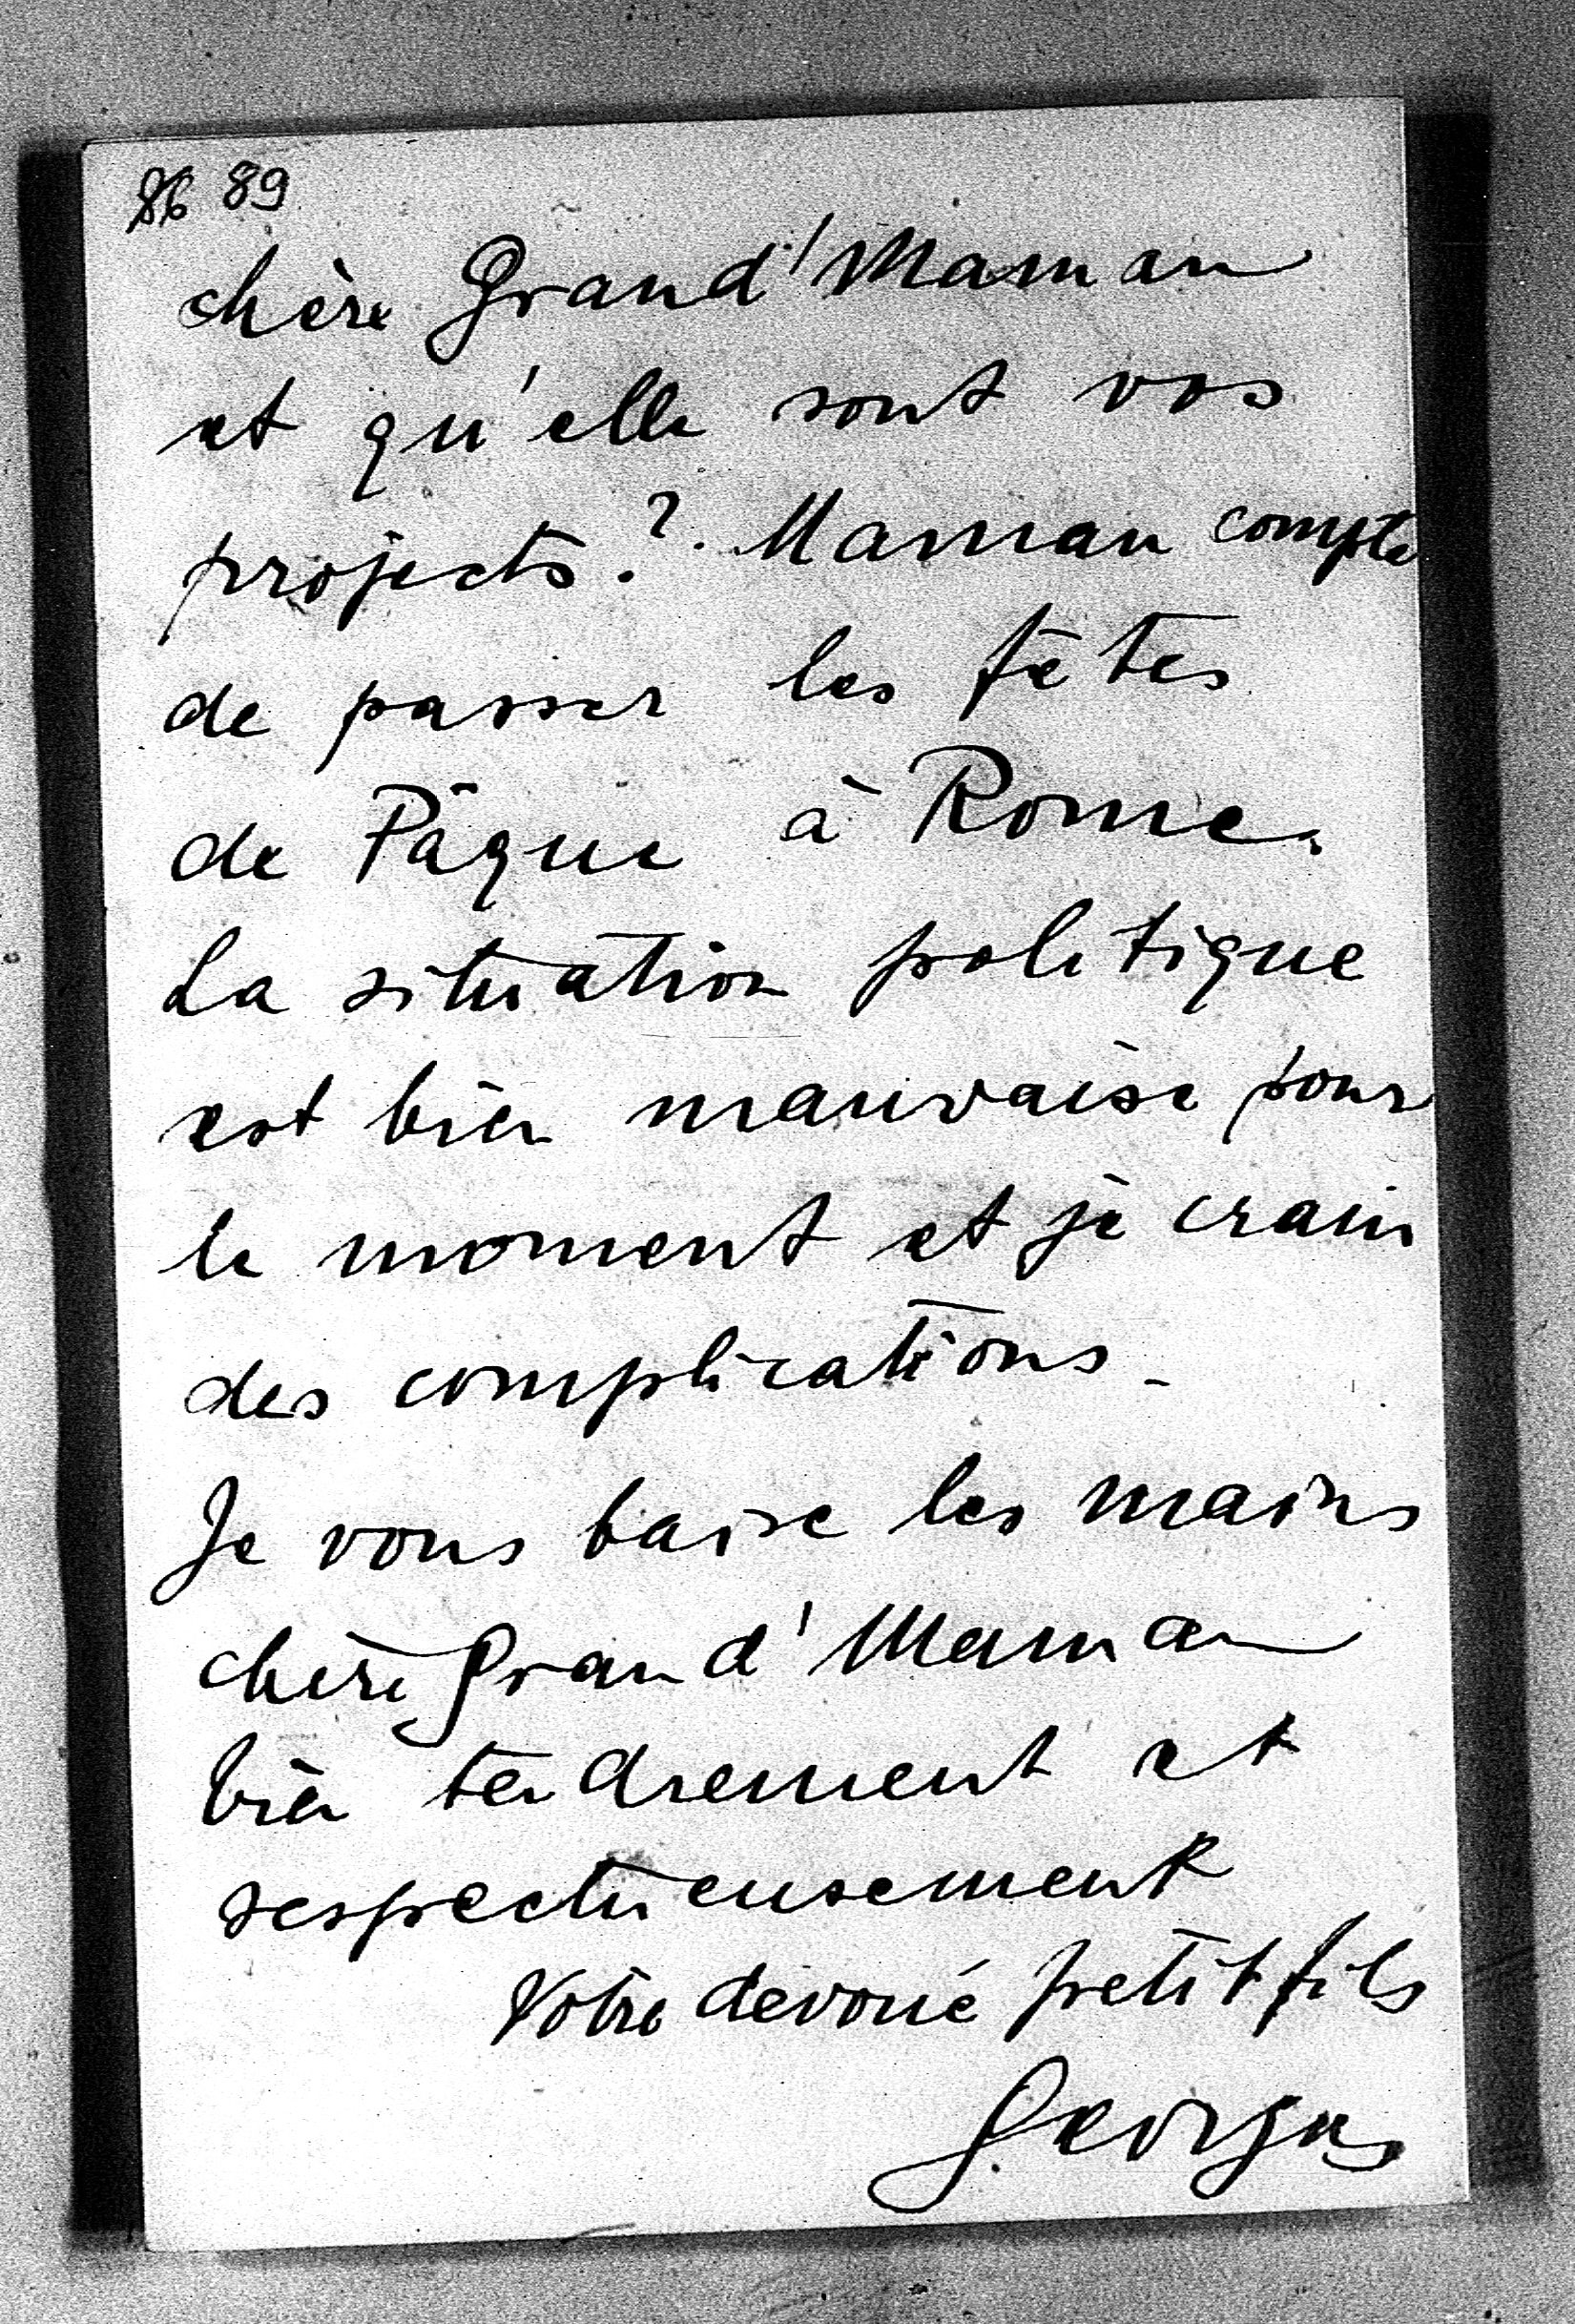 86 89
chère Grand'Maman
et qu'elle sont vos
projects? Maman compte
de passer les fêtes
de Pâque à Rome.
La situation politique
est bien mauvaise pour
le moment et je crains
des complications_
Je vous baise les mains
chère Grand'Maman
bien tendrement et
respectueusement
Votre devoué petit fils
Georges